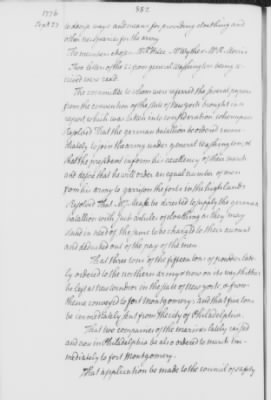 1776
552
Sept 23
to devise ways and means for providing cloathing and
other necessaries for the army
The members chosen Mr Paca Mr Wythe Mr R. Morris
Two letters of the 21 from general Washington being re
ceived were read
The committee to whom were referred the several papers
from the convention of the state of New york brought in a
report which was taken into consideration whereupon
Resolved That the german batallion be ordered imme
diately to join the army under general Washington, &
that the president inform his excellency of their march
and desire that he will order an equal number of men
from his army to garrison the forts in the high lands
Resolved That Mr Mease be directed to supply the german
batallion with such articles of cloathing as they may
stand in need of, the same to be charged to their account
and deducted out of the pay of the men
That three tons of the fifteen tons of powder late
ly ordered to the northern army & now on the way thither
be left at new windsor in the state of New york, & from
thence conveyed to fort montgomery; and that five tons
be immediately sent from the city of Philadelphia.
That two companies of the marines lately raised
and now in Philadelphia be also ordered to march im
mediately to fort Montgomery.
That application be made to the council of safety